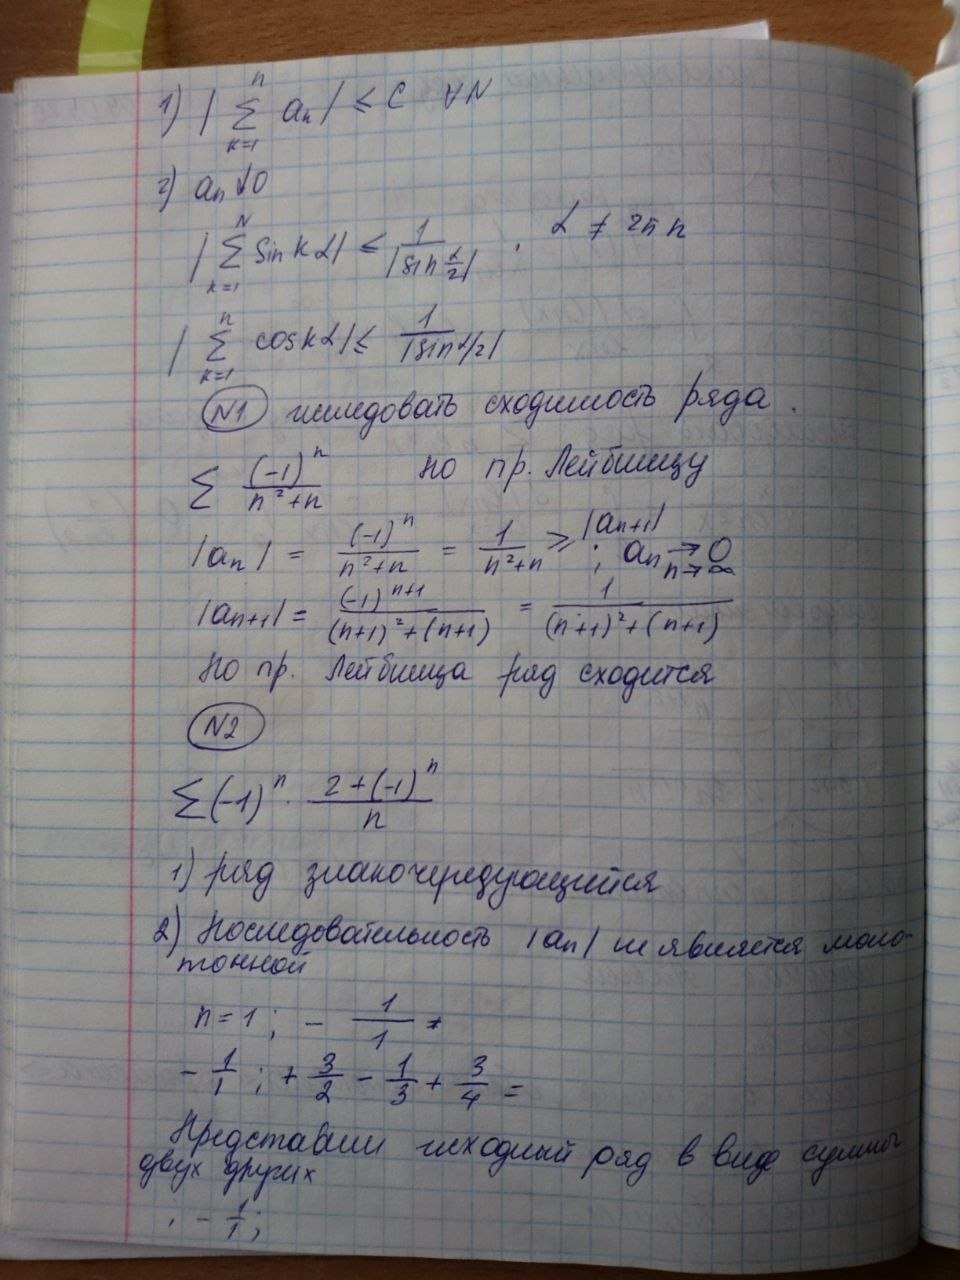 1) |∑_{k=1}^{n} aₙ| ≤ C ∀N
2) aₙ ↓ 0
|∑_{k=1}^{N} sin kα| ≤ 1/|sin α/2| , α ≠ 2πn
|∑_{k=1}^{n} cos kα| ≤ 1/|sin α/2|
N1 исследовать сходимость ряда.
∑ (-1)ⁿ/(n²+n) По пр. Лейбницу
|aₙ| = (-1)ⁿ/(n²+n) = 1/(n²+n) ≥ |aₙ₊₁| ; aₙ →_{n→∞} 0
|aₙ₊₁| = (-1)ⁿ⁺¹/((n+1)²+(n+1)) = 1/((n+1)²+(n+1))
По пр. Лейбница ряд сходится
N2
∑(-1)ⁿ · (2+(-1)ⁿ)/n
1) ряд знакочередующийся
2) Последовательность |aₙ| не является моно-
тонной
n=1 ; - 1/1
- 1/1 ; + 3/2 - 1/3 + 3/4 =
Представим исходный ряд в виде суммы
двух других
; - 1/1 ;